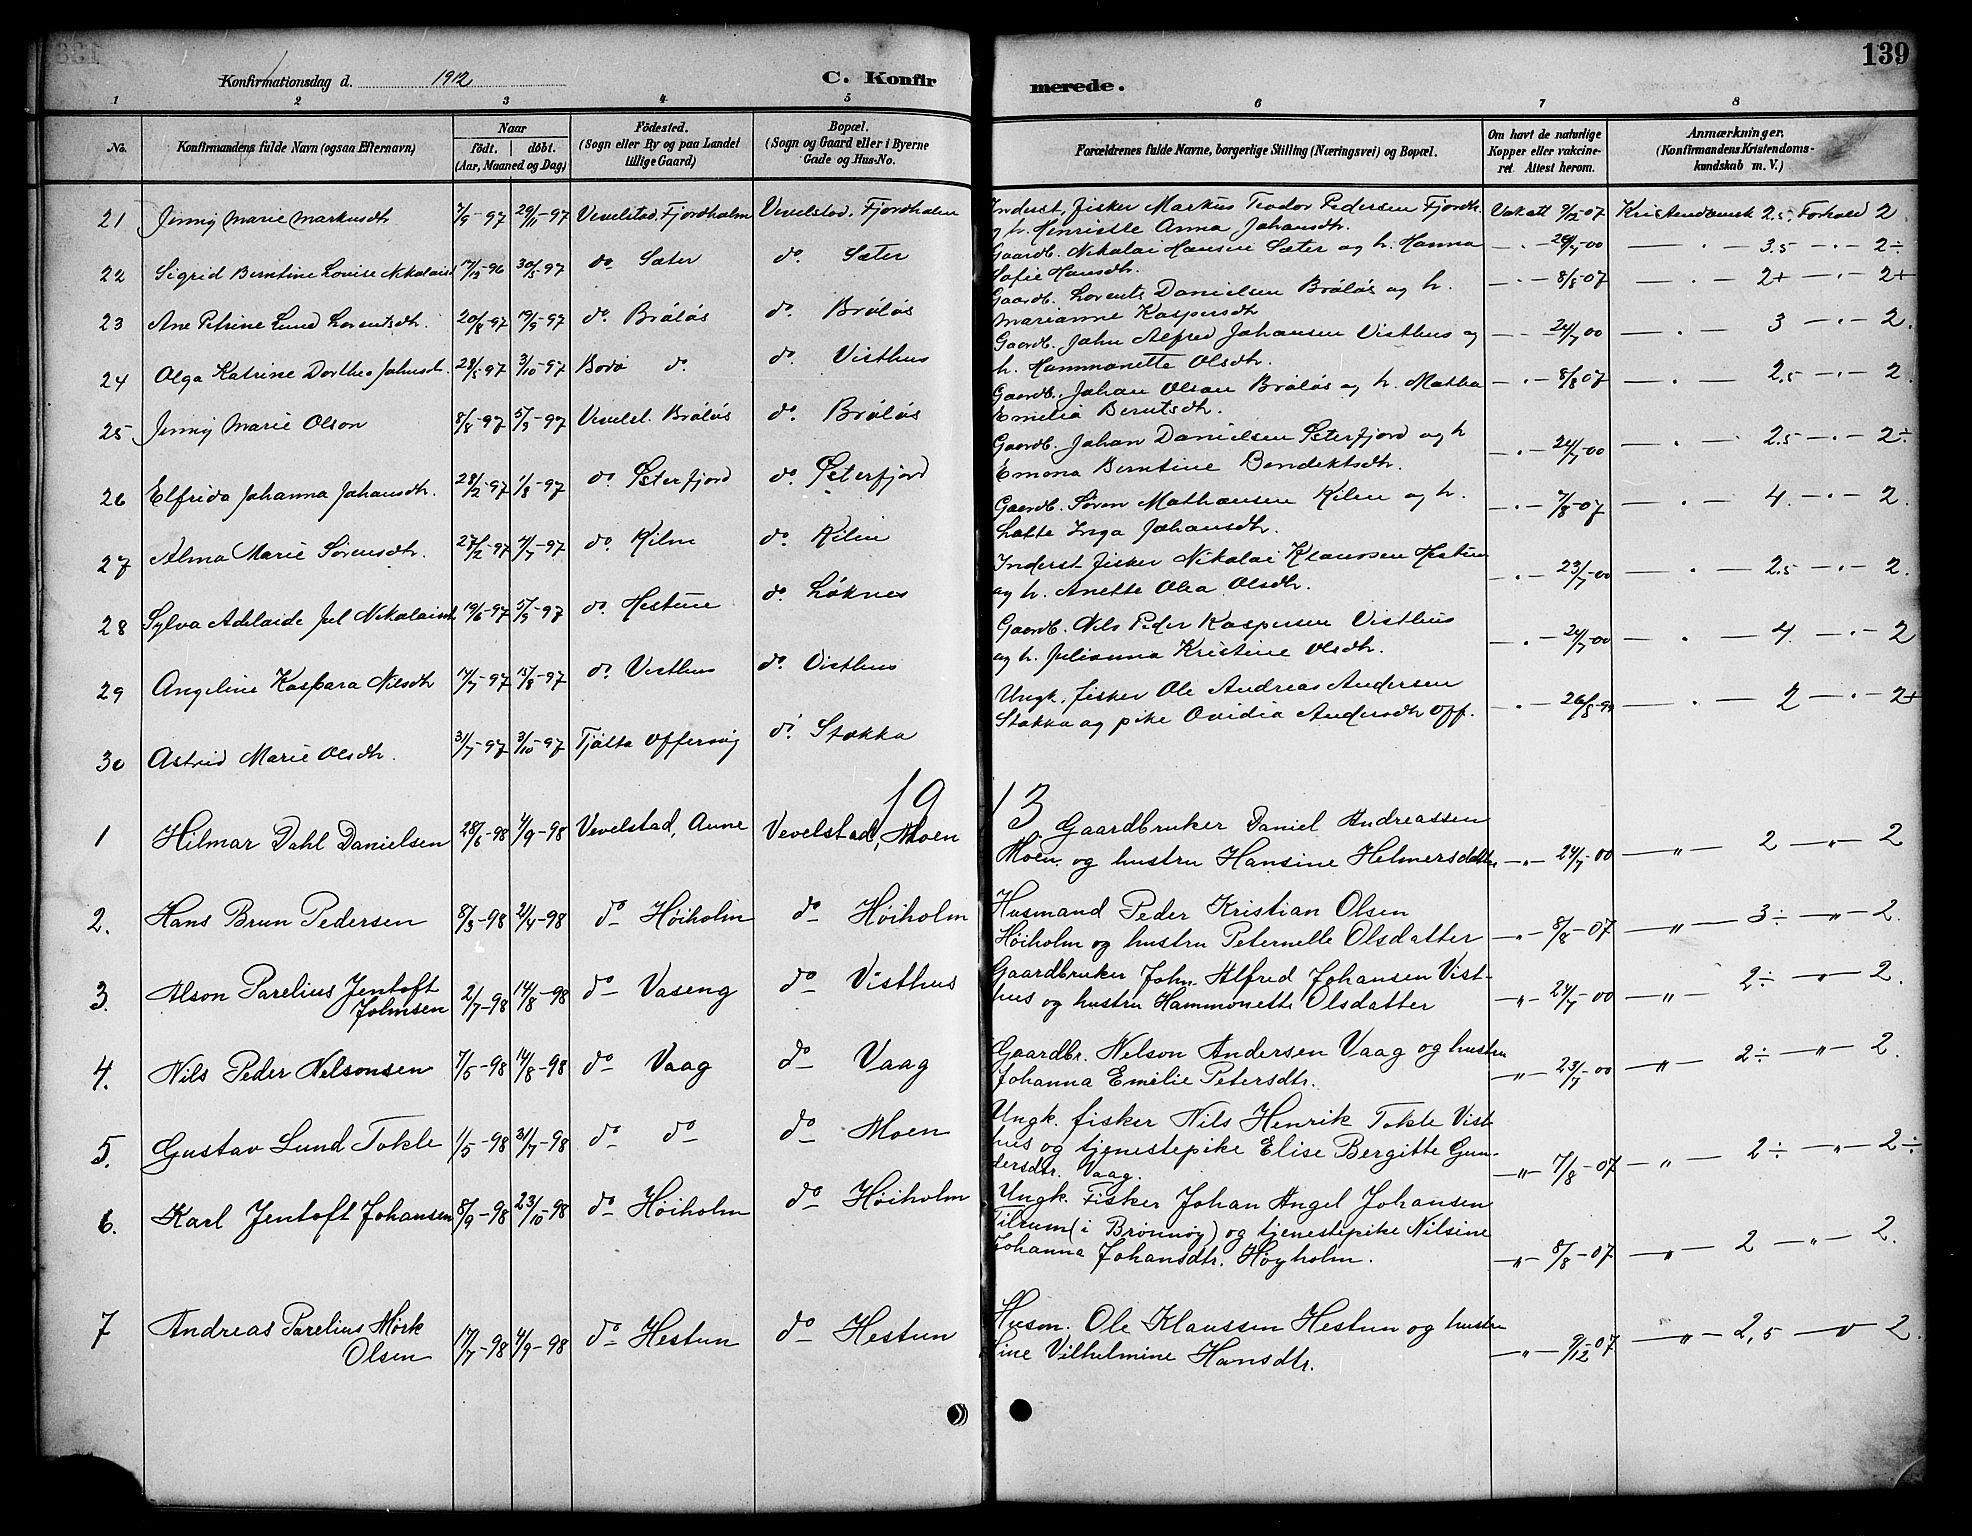 139
Konfirmationsdag d. 1912
C. Konfirmerede.
1 2 3 4 5 6 7 8
No. Konfirmandens fulde Navn (ogsaa Efternavn) Naar Födt. döbt. (Aar, Maaned og Dag) Födested. (Sogn eller By og paa Landet tillige Gaard) Bopæl. (Sogn og Gaard eller i Byerne Gade og Hus-No. Forældrenes fulde Navne, borgerlige Stilling (Næringsvei) og Bopæl. Om havt de naturlige Kopper eller vakcineret. Attest herom. Anmærkninger, (Konfirmandens Kristendomskundskab m. V.)
21 Jenny Marie Markusdtr 7/9-97 29/11-97 Vevelstad, Fjordholm Vevelstad, Fjordholm Inderst, fisker Markus Teodor Pedersen Fjordh. Vak. att 9/12-07 Kristendomsk 2.5 Forhold 2
og h. Henriette Anna Johansdtr.
22 Sigrid Berntine Louise Nikolaisd 17/12-96 30/5-97 do. Sæter do. Sæter Gaardb. Nikolai Hansen Sæter og h. Hanna 24/7-00 3.5 2÷
Sofie Hansdtr.
23 Ane Petrine Lund Lorentsdtr. 20/8-97 19/9-97 do. Bröløs do. Bröløs Gaardb. Lorents Danielsen Bröløs og h. 8/8 07 2+ 2+
Marianne Kaspersdtr
24 Olga Katrine Dorthea Johnsdt. 28/8-97 3/10-97 Bodø do do. Visthus Gaardb. John Alfred Johansen Visthus og 24/7 00 3 2.
h. Hammonette Olsdtr.
25 Jenny Marie Olson 8/8-97 5/9-97 Vevelst. Bröløs do. Bröløs Gaardb. Johan Olson Bröløs og h. Mathea 8/8 07 2.5 2.
Emelia Berntsdtr.
26 Elfrida Johanna Johansdtr. 28/2-97 1/8-97 do. Sæterfjord do. Sæterfjord Gaardb. Johan Danielsen Sæterfjord og h 24/7-00 2.5 2÷
Emma Berntine Bendiktsdtr.
27 Alma Marie Sørensdtr. 27/2-97 4/7-97 do. Kilen do. Kilen Gaardb. Søren Mathæusen Kilen og h. 7/8-07 4. 2.
Lotte Inga Johansdtr.
28 Sylva Adelaide Jul Nikolaisdt 19/6-97 5/9-97 do. Hestun do. Løknes Inderst fisker Nikolai Klausen Hestun 23/7-00 2.5 2.
og h. Anette Olea Olsdtr.
29 Angeline Kaspara Nilsdtr 17/7-97 15/8-97 do. Visthus do. Visthus Gaardb. Nils Peder Kaspersen Visthus 24/7-00 4 2
og h. Julianna Kristine Olsdtr.
30 Astrid Marie Olsdtr. 3/7-97 3/10-97 Tjøtta Offersøy do. Stokka Ungk. fisker Ole Andreas Andersen 26/8-9 2 2+
Stokka og pike Ovidia Andersdtr Off.
1913
1 Hilmar Dahl Danielsen 28/6-98 4/9-98 Vevelstad, Aune Vevelstad, Moen Gaardbruker Daniel Andreassen
Moen og hustru Hansine Helmersdatter 24/7-00 2 2
2. Hans Brun Pedersen 8/3-98 2/4-98 do Høiholm do Høiholm Husmand Peder Kristian Olsen
Høiholm og hustru Peternelle Olsdatter 8/8-07 3÷ 2.
3. Alson Parelius Jentoft Johnsen 2/7-98 14/8-98 do Vaseng do Visthus Gaardbruker John Alfred Johansen Vist-
hus og hustru Hammonette Olsdatter 24/7-00 2÷ 2.
4. Nils Peder Nelsonsen 7/5-98 14/8-98 do Vaag do Vaag Gaardbr. Nelson Andersen Vaag og hustru
Johanna Emelie Petersdtr. 23/7-00 2÷ 2.
5. Gustav Lund Tokle 1/5-98 31/7-98 do do do Moen Ungk. fisker Nils Henrik Tokle Vist-
hus og tjenestepike Elise Bergitte Gun-
dersdtr. Vaag. 7/8-07 2÷ 2÷
6. Karl Jentoft Johansen 8/9-98 23/10-98 do Høiholm do Høiholm Ungk. Fisker Johan Angel Johansen
Tilrum (i Brønnøy) og tjenestepike Nilsine
Johanna Johansdtr. Høyholm. 8/8-07 2 2.
7 Andreas Parelius Mørk Olsen 17/7-98 4/9-98 do Hestun do Hestun Husm. Ole Klaussen Hestun og hustru
Line Vilhelmine Hansdtr. 9/12-07 2,5 2.